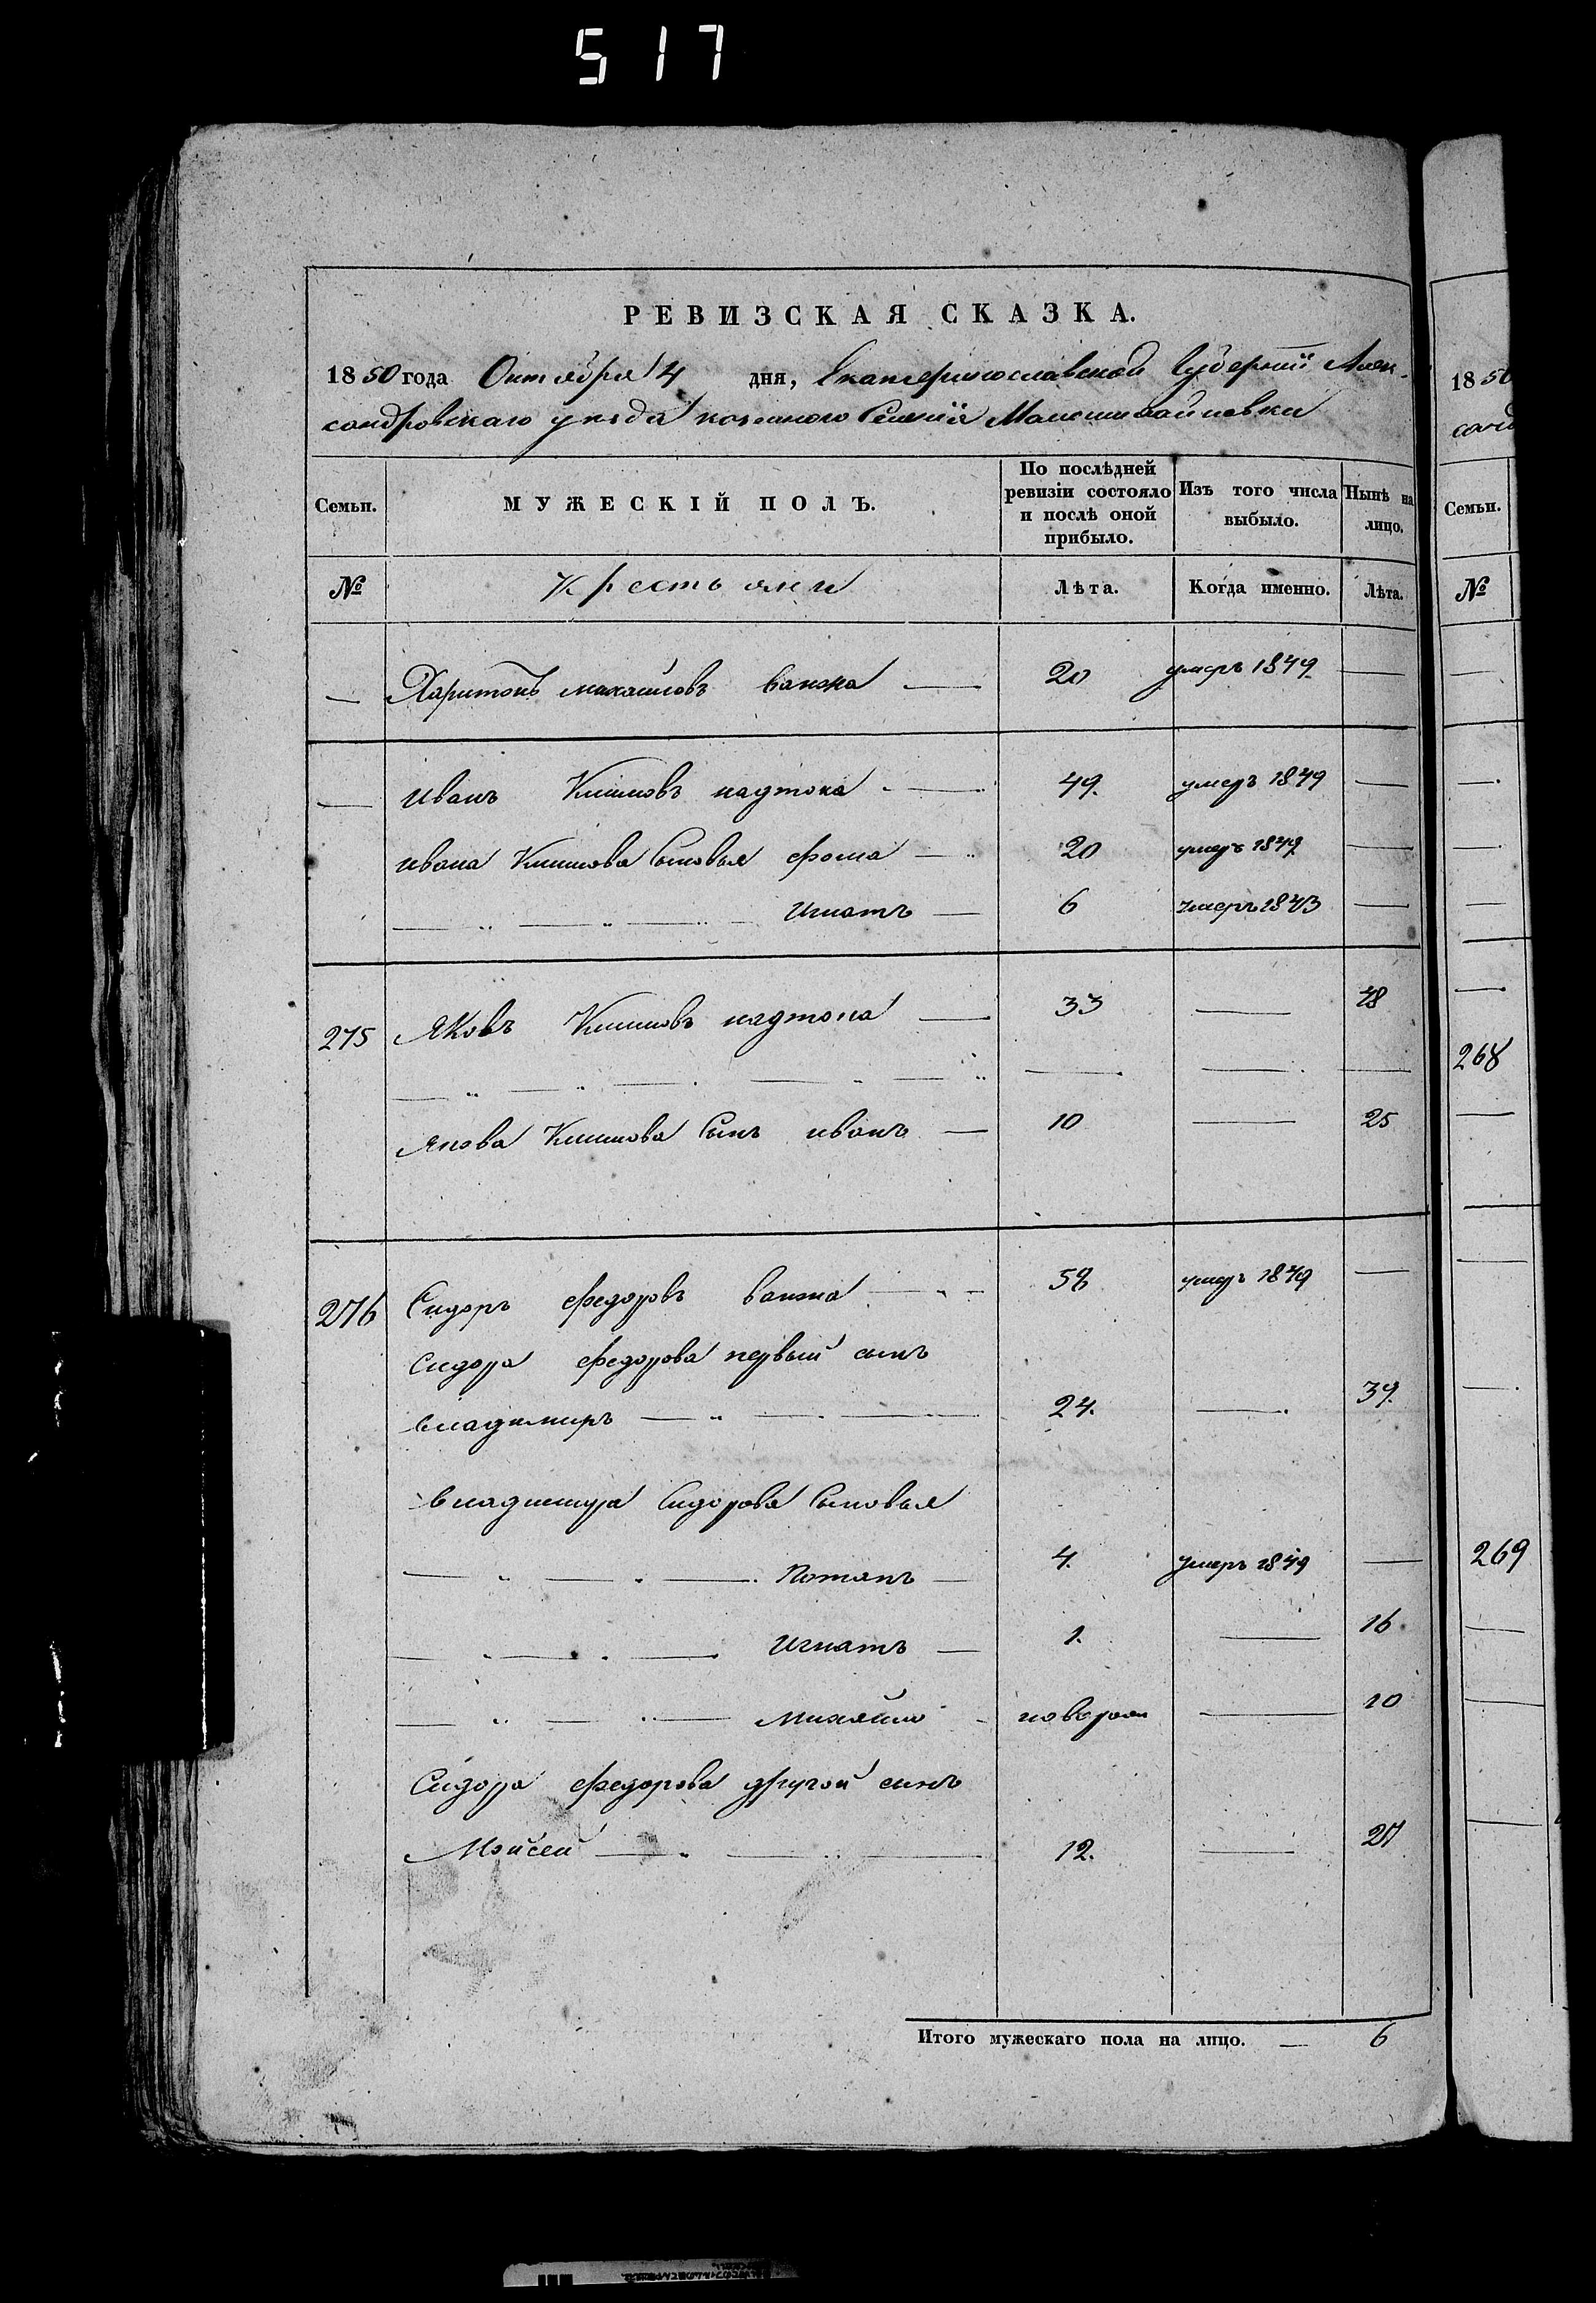 517
РЕВИЗСКАЯ СКАЗКА.
1850 года Октября 4 дня, Екатеринославской Губерніи Алек-
сандровскаго уезда казенного Селенія
Семьи. МУЖЕСКІЙ ПОЛЪ. По послѣдней ревизіи состояло и послѣ оной прибыло. Изъ того числа выбыло. Нынѣ на лицо.
№ Крестьяни Лѣта. Когда именно. Лѣта.
— Харитонъ Михайловъ — 20 умеръ 1849 —
— Иванъ Климовъ надтока — 49. умеръ 1849 —
Ивана Климова Сыновья фома — 20 умеръ 1849 —
Игнатъ — 6 умеръ 1843 —
275 Яковъ Климовъ надтока — 33 — 48
Якова Климова Сынъ иванъ — 10 — 25
276 Сидоръ федоровъ — 58 умеръ 1849 —
Сидора федорова первый сынъ
владимиръ — 24. — 39.
владимира Сидорова Сыновья
Потапъ — 4. умеръ 1849 —
Игнатъ — 1. — 16
Михайло новорож — 10
Сидора федорова другой сынъ
Мойсей — 12. — 27
Итого мужескаго пола на лицо. — 6
1850
Семьи.
№
268
269